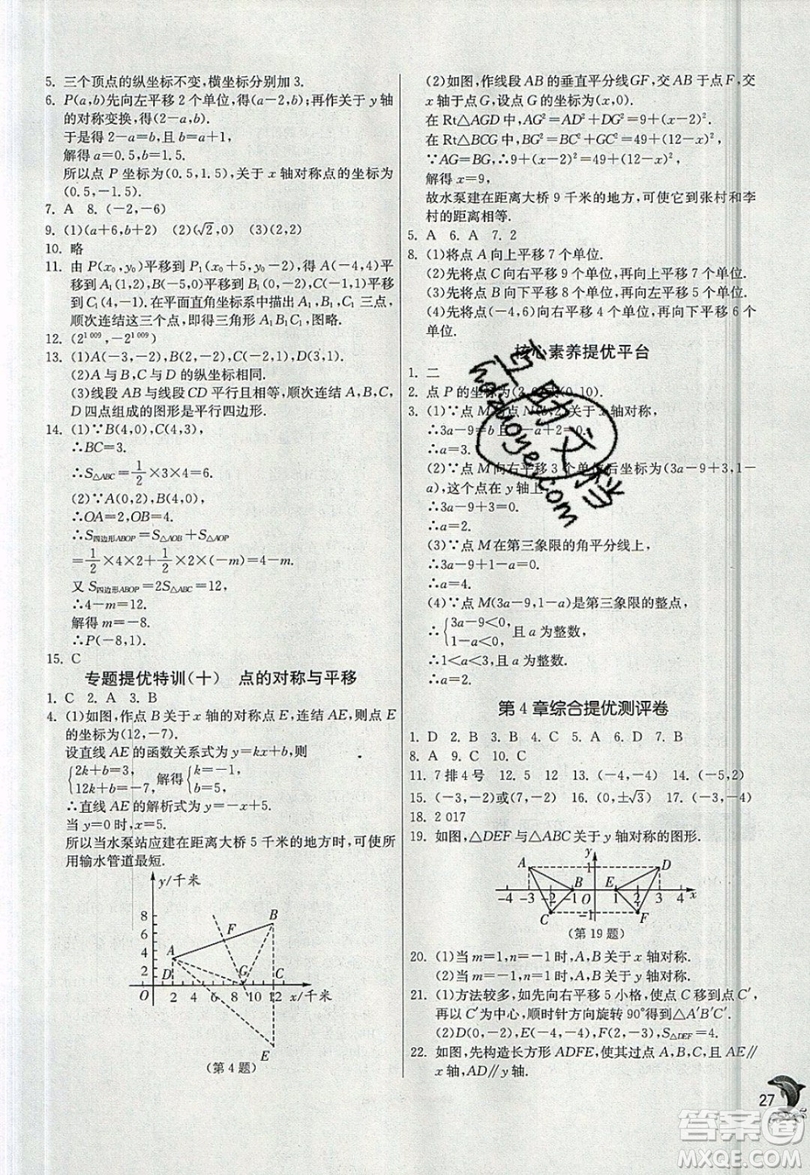 5. 三个顶点的纵坐标不变,横坐标分别加 3.
6. P(a,b)先向左平移 2 个单位,得(a-2,b);再作关于 y 轴
的对称变换,得(2-a,b).
于是得 2-a=b,且 1-b=a,
解得 a=0.5,b=1.5.
所以点 P 坐标为(0.5,1.5),关于 x 轴对称点的坐标为
(0.5,-1.5).
7. A 8. (-2,-6)
9. (1)(a+6,b+2) (2)(√2,0) (3)(2,2)
10. 略
11. 由 P(x₀,y₀)平移到 P₁(x₀+5,y₀-2),得 A(-4,4)平
移到 A₁(1,2),B(-5,1)平移到 B₁(0,-1),C(-1,1)平移
到 C₁(4,-1).在平面直角坐标系中描出 A₁,B₁,C₁ 三点,
顺次连结这三个点,即得三角形 A₁B₁C₁,图略.
12. (2¹⁰⁰⁹,-2¹⁰¹⁰)
13. (1)A(-3,-2),B(-5,4),C(5,-4),D(0,-3).
(2)A,B 两点的纵坐标相同.
(3)线段 AB 与线段 CD 平行且相等,顺次连结 A,B,C,
D 四点组成的图形是平行四边形.
14. (1)∵B(0,4),C(-3,4),
∴BC=3.
∴S△ABC=1/2×3×4=6.
(2)∵A(0,2),B(0,4),
∴OA=2,OB=4.
∴S四边形ABOP=S△AOB+S△AOP
=1/2×4×2+1/2×2×(-m)=4-m.
又 S四边形ABOP=2S△ABC=12,
∴4-m=12.
解得 m=-8.
∴P(-8,1).
15. C
专题提优特训(十) 点的对称与平移
1. C 2. A 3. B
4. (1)如图,作点 B 关于 x 轴的对称点 E,连结 AE,则点 E
的坐标为(12,-7).
设直线 AE 的函数关系式为 y=kx+b,
{2k+b=3, 12k+b=-7 解得{k=-1, b=5.
∴直线 AE 的解析式为 y=-x+5.
当 y=0 时,x=5.
所以当水泵站应建在距离大桥 5 千米的地方时,可使所
用输水管道最短.
y/千米
8
6
4
2
O
2 4 6 8 10 12 x/千米
A
B
F
D
G
C
E
(第 4 题)
(2)如图,作线段 AB 的垂直平分线GF,交 AB 于点 F,交
x 轴于点 G,设点 G 的坐标为(x,0).
在 Rt△AGD 中,AG²=AD²+DG²=9+(x-2)²,
在 Rt△BCG 中,BG²=BC²+GC²=49+(12-x)²,
∵AG=BG,∴9+(x-2)²=49+(12-x)²,
解得 x=9.
故水泵建在距离大桥 9 千米的地方,可使它到张村和李
村的距离相等.
5. A 6. A 7. 2
8. (1)将点 A 向上平移 7 个单位.
(2)先将点 C 向右平移 9 个单位,再向上平移 7 个单位.
(3)先将点 E 向右平移 5 个单位,再向左平移 7 个单位.
(4)先将点(-4,6)向右平移 4 个单位,再向下平移 6 个
单位.
核心素养提优平台
1. 二
2. 点 P 的坐标为
3. (1)∵点 M 点 N(3,2)关于 x 轴对称,
∴3a-9=3,
∴a=4.
(2)∵点 M 向右平移 3 个单位后坐标为(3a-9+3,1-
a),这个点在 y 轴上,
∴3a-9+3=0.
∴a=2.
(3)∵点 M 在第三象限的角平分线上,
∴3a-9=1-a,
∴a=2.5.
(4)∵点 M(3a-9,1-a)是第三象限的点,
∴{3a-9<0, 1-a<0, 且 a 为整数,
∴1<a<3,且 a 为整数,
∴a=2.
第 4 章综合提优测评卷
1. D 2. B 3. B 4. C 5. A 6. D 7. B
8. A 9. C 10. C
11. 7 排 4 号 12. 5 12 13. (-4,-7) 14. (-5,2)
15. (-3,-2)或(-3,2) 16. (0,±√3) 17. (-4,-2)
18. 2 017
19. 如图,△DEF 与△ABC 关于 y 轴对称的图形.
y
A 1 D
-4 -3 -2 -1 O 1 2 3 4 x
B E
C -1 F
(第 19 题)
20. (1)当 m=1,n=-1 时,A,B 关于 x 轴对称.
(2)当 m=-1,n=1 时,A,B 关于 y 轴对称.
21. (1)方法较多,如先向右平移 5 小格,使点 C 移到点 C′,
再以 C′为中心,顺时针方向旋转 90°得到△A′B′C′.
(2)D(0,-2),E(-4,-4),F(2,-3),S△DEF=4.
22. 如图,先构造长方形 ADFE,使其过点 A,B,C,且 AE∥
x 轴,AD∥y 轴.
27
互助文档
huzuoye.com
答案圈
MXQE.COM